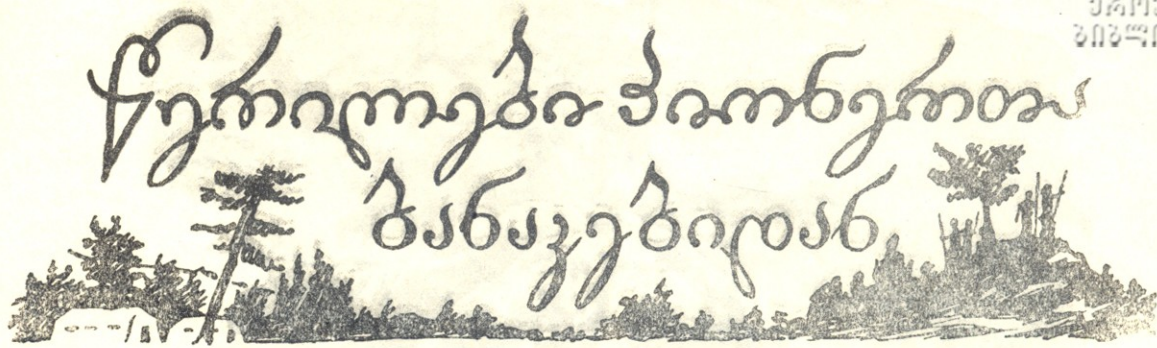 წერილები პიონერთა
ბანაკებიდან